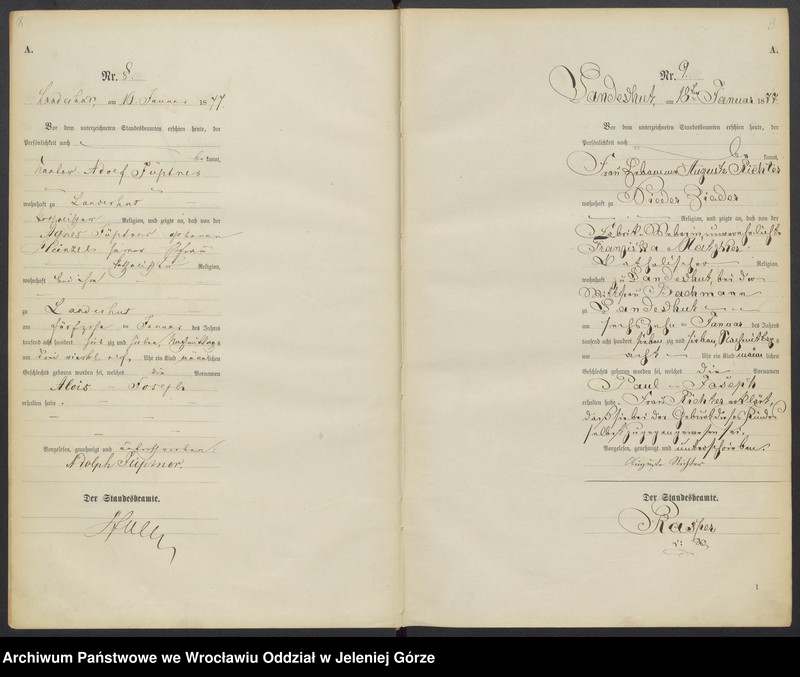 8
A.
Nr. 8.
Landeshut, am 16 Januar 1877.
Vor dem unterzeichneten Standesbeamten erschien heute, der
Persönlichkeit nach
be kannt,
Adolf Füßtner
wohnhaft zu Landeshut
katholischer Religion, und zeigte an, daß von der
Agnes Füßtner geborenen
Heinzel seiner Ehefrau
katholischer Religion,
wohnhaft bei ihm
zu Landeshut
am fünfzehn ten Januar des Jahres
tausend acht hundert sieb zig und sieben, Nachmittags
um drei viertel Uhr ein Kind männlichen
Geschlechts geboren worden sei, welches die Vornamen
Alois Joseph
erhalten habe.
Vorgelesen, genehmigt und unterschrieben.
Adolph Füßtner.
Der Standesbeamte.
9
A.
Nr. 9.
Landeshut, am 18ten Januar 1877.
Vor dem unterzeichneten Standesbeamten erschien heute, der
Persönlichkeit nach
be kannt,
Frau Johanna Auguste Richter
wohnhaft zu Nieder Zieder
Religion, und zeigte an, daß von der
Fabrik-Weberin, unverehelichte
Franziska
Katholischer Religion,
wohnhaft zu Landeshut, bei der
Wittfrau Bachmann
zu Landeshut
am sechszehn ten Januar des Jahres
tausend acht hundert sieben zig und sieben, Nachmittags
um acht Uhr ein Kind männ lichen
Geschlechts geboren worden sei, welches die Vornamen
Paul Joseph
erhalten habe. Frau Richter erklärt,
daß sie bei der Geburt dieses Kindes
selbst zugegen gewesen sei.
Vorgelesen, genehmigt und unterschrieben.
Auguste Richter
Der Standesbeamte.
Rasper
1
Archiwum Państwowe we Wrocławiu Oddział w Jeleniej Górze